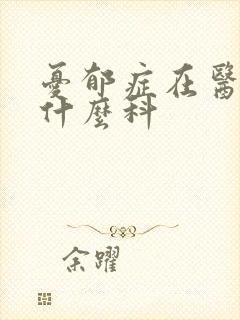 憂郁症在醫
什麼科
余躍